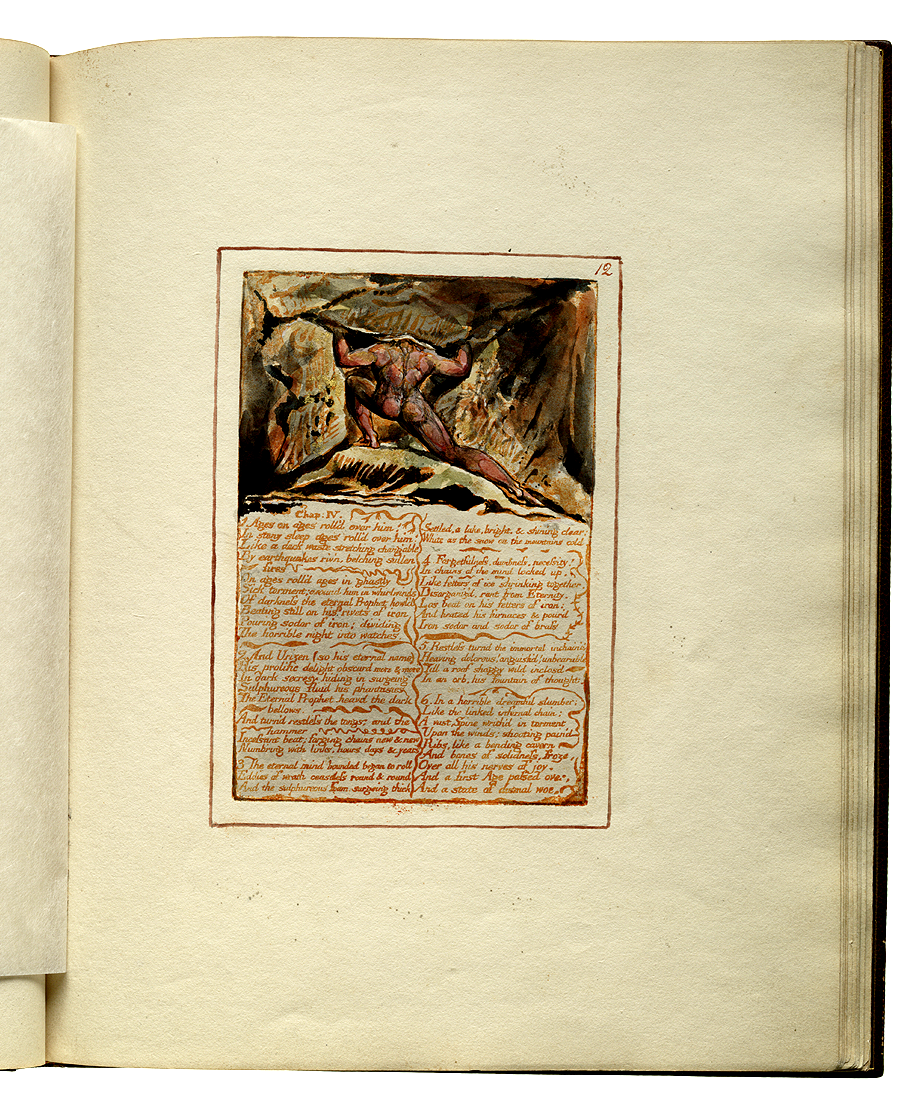 12
Chap: IV.
1. Ages on ages roll'd over him!
In stony sleep ages roll'd over him!
Like a dark waste stretching chang'able
By earthquakes riv'n, belching sullen
fires
On ages roll'd ages in ghastly
Sick torment; around him in whirlwinds
Of darkness the eternal Prophet howl'd
Beating still on his rivets of iron
Pouring sodor of iron; dividing
The horrible night into watches.
2. And Urizen (so his eternal name)
His prolific delight obscurd more & more
In dark secresy hiding in surgeing
Sulphureous fluid his phantasies.
The Eternal Prophet heavd the dark
bellows.
And turn'd restless the tongs; and the
hammer
Incessant beat; forging chains new & new
Numb'ring with links. hours, days & years
3 The eternal mind bounded began to roll
Eddies of wrath ceaseless round & round
And the sulphureous foam surgeing thick
Settled, a lake, bright, & shining clear:
White as the snow on the mountains cold.
4. Forgetfulness, dumbness, necessity!
In chains of the mind locked up.
Like fetters of ice shrinking together
Disorganiz'd, rent from Eternity.
Los beat on his fetters of iron;
And heated his furnaces & pour'd
Iron sodor and sodor of brass
5. Restless turnd the immortal inchain'd
Heaving dolorous! anguish'd! unbearable
Till a roof shaggy wild inclos'd
In an orb, his fountain of thought.
6. In a horrible dreamful slumber;
Like the linked infernal chain;
A vast Spine writh'd in torment
Upon the winds; shooting pain'd
Ribs, like a bending cavern
And bones of solidness, froze
Over all his nerves of joy.
And a first Age passed over,
And a state of dismal woe.